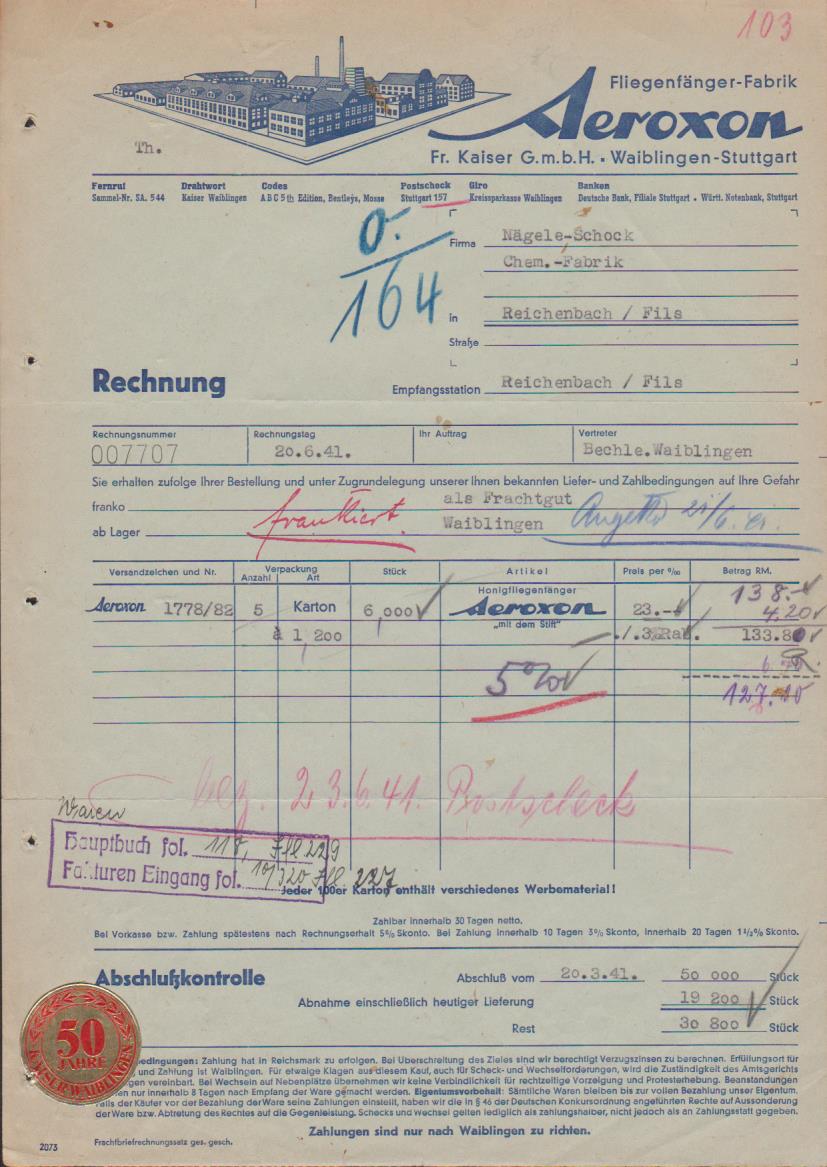 103
Fliegenfänger-Fabrik
Aeroxon
Th.
Fr. Kaiser G.m.b.H. • Waiblingen-Stuttgart
Fernruf Drahtwort Codes Postscheck Giro Banken
Sammel-Nr. SA. 544 Kaiser Waiblingen A B C 5th Edition, Bentleys, Mosse Stuttgart 157 Kreissparkasse Waiblingen Deutsche Bank, Filiale Stuttgart • Württ. Notenbank, Stuttgart
0.
164
Firma Nägele-Schock
Chem.-Fabrik
in Reichenbach / Fils
Straße
Rechnung
Empfangsstation Reichenbach / Fils
Rechnungsnummer Rechnungstag Ihr Auftrag Vertreter
007707 20.6.41. Bechle.Waiblingen
Sie erhalten zufolge Ihrer Bestellung und unter Zugrundelegung unserer Ihnen bekannten Liefer- und Zahlbedingungen auf Ihre Gefahr
franko frankiert. als Frachtgut
ab Lager Waiblingen
Versandzeichen und Nr. Verpackung Anzahl Art Stück Artikel Preis per ‰ Betrag RM.
Honigfliegenfänger 138.-
Aeroxon 1778/82 5 Karton 6,000 Aeroxon 23.- 4.20
à 1,200 „mit dem Stift" ./.3%Rab. 133.80
5%
127.10
bez. 23.6.41. Postscheck
Waren
Hauptbuch fol. 118,
Fakturen Eingang fol. 227
Jeder 100er Karton enthält verschiedenes Werbematerial!
Zahlbar innerhalb 30 Tagen netto.
Bei Vorkasse bzw. Zahlung spätestens nach Rechnungserhalt 5% Skonto. Bei Zahlung innerhalb 10 Tagen 3% Skonto, innerhalb 20 Tagen 1½% Skonto.
Abschlußkontrolle Abschluß vom 20.3.41. 50 000 Stück
Abnahme einschließlich heutiger Lieferung 19 200 Stück
Rest 30 800 Stück
50
JAHRE
KAISER WAIBLINGEN
bedingungen: Zahlung hat in Reichsmark zu erfolgen. Bei Überschreitung des Zieles sind wir berechtigt Verzugszinsen zu berechnen. Erfüllungsort für
und Zahlung ist Waiblingen. Für etwaige Klagen aus diesem Kauf, auch für Scheck- und Wechselforderungen, wird die Zuständigkeit des Amtsgerichts
gen vereinbart. Bei Wechseln auf Nebenplätze übernehmen wir keine Verbindlichkeit für rechtzeitige Vorzeigung und Protesterhebung. Beanstandungen
en nur innerhalb 8 Tagen nach Empfang der Ware gemacht werden. Eigentumsvorbehalt: Sämtliche Waren bleiben bis zur vollen Bezahlung unser Eigentum.
Falls der Käufer vor der Bezahlung der Ware seine Zahlungen einstellt, haben wir die in § 46 der Deutschen Konkursordnung angeführten Rechte auf Aussonderung
der Ware bzw. Abtretung des Rechtes auf die Gegenleistung. Schecks und Wechsel gelten lediglich als zahlungshalber, nicht jedoch als an Zahlungsstatt gegeben.
Zahlungen sind nur nach Waiblingen zu richten.
2073 Frachtbriefrechnungssatz ges. gesch.